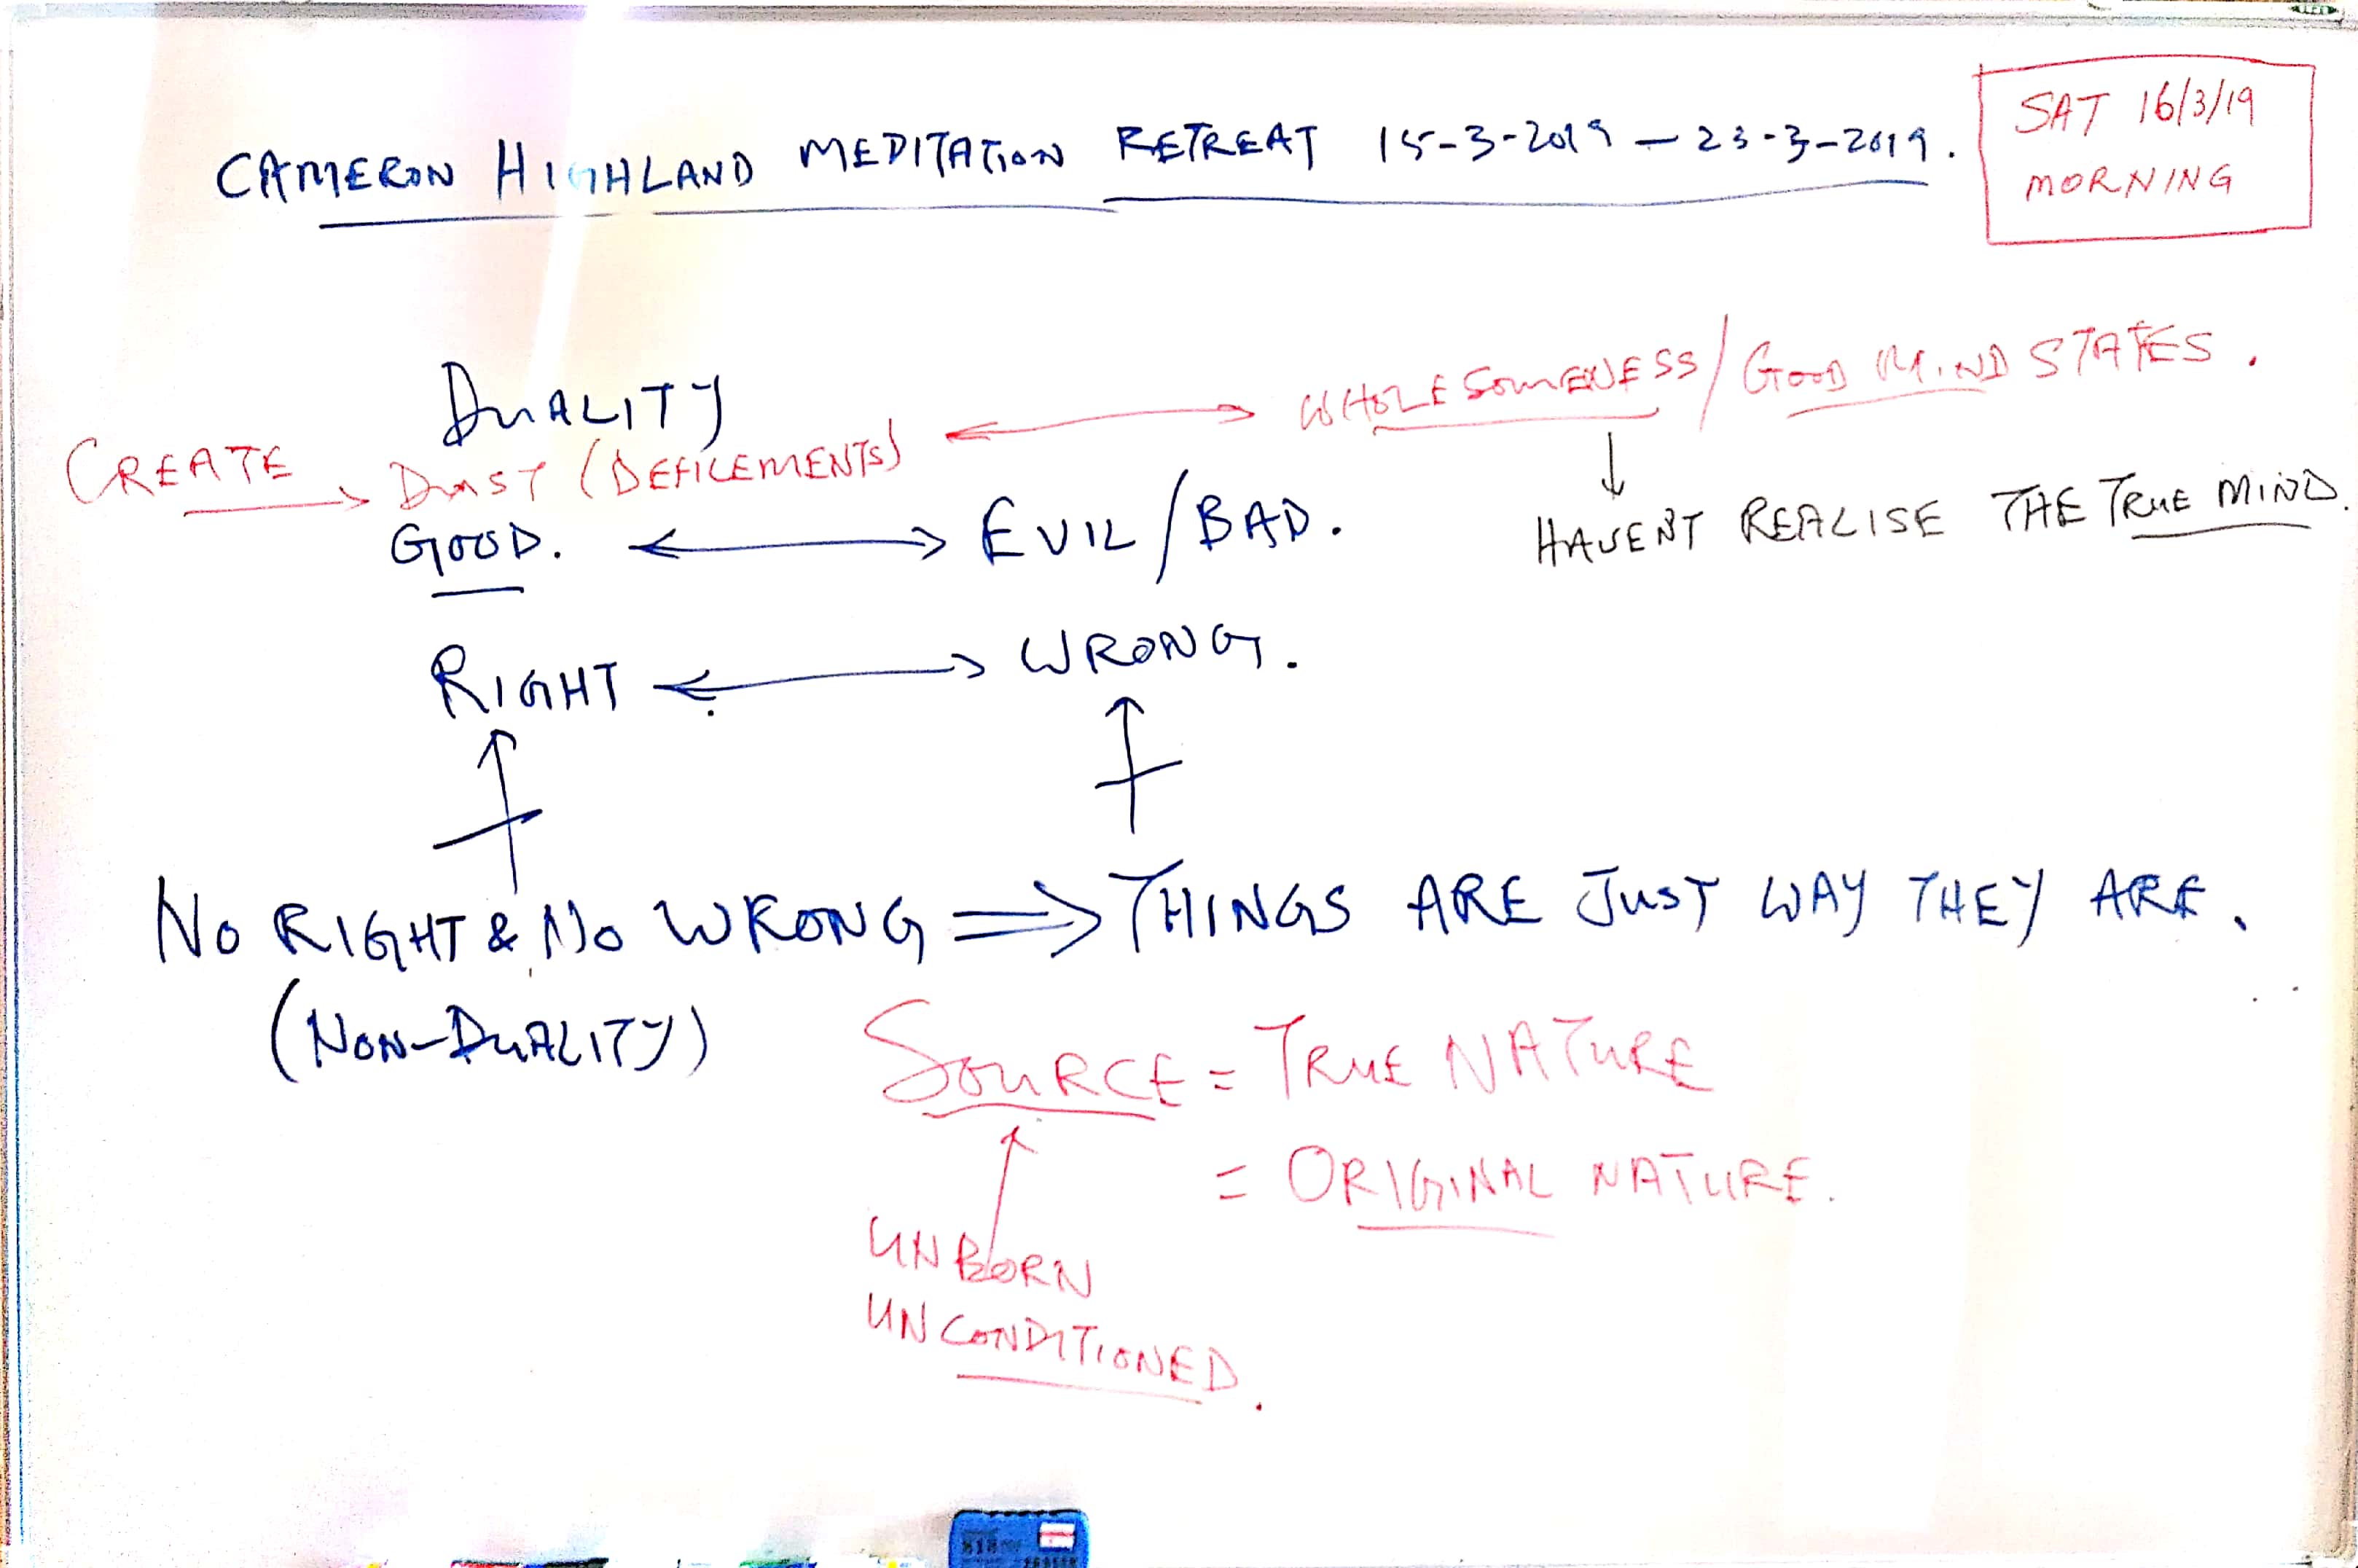 CAMERON HIGHLAND MEDITATION RETREAT 15-3-2019 – 23-3-2019.
SAT 16/3/19
MORNING
DUALITY
CREATE → DUST (DEFILEMENTS) ↔ WHOLESOMENESS / GOOD MIND STATES.
↓
HAVENT REALISE THE TRUE MIND.
GOOD. ↔ EVIL / BAD.
RIGHT ↔ WRONG.
NO RIGHT & NO WRONG ⇒ THINGS ARE JUST WAY THEY ARE.
(NON-DUALITY)
SOURCE = TRUE NATURE
= ORIGINAL NATURE.
UNBORN
UNCONDITIONED.